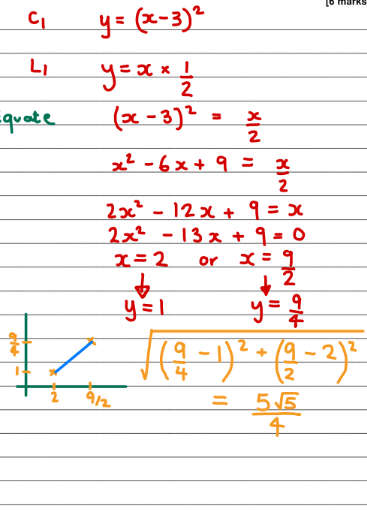 [6 marks
C₁ y = (x-3)²
L₁ y = x × 1/2
quate (x - 3)² = x/2
x² - 6x + 9 = x/2
2x² - 12x + 9 = x
2x² - 13x + 9 = 0
x = 2 or x = 9/2
↓ ↓
y = 1 y = 9/4
√((9/4 - 1)² + (9/2 - 2)²)
= 5√5/4
9/4
1
2 9/2